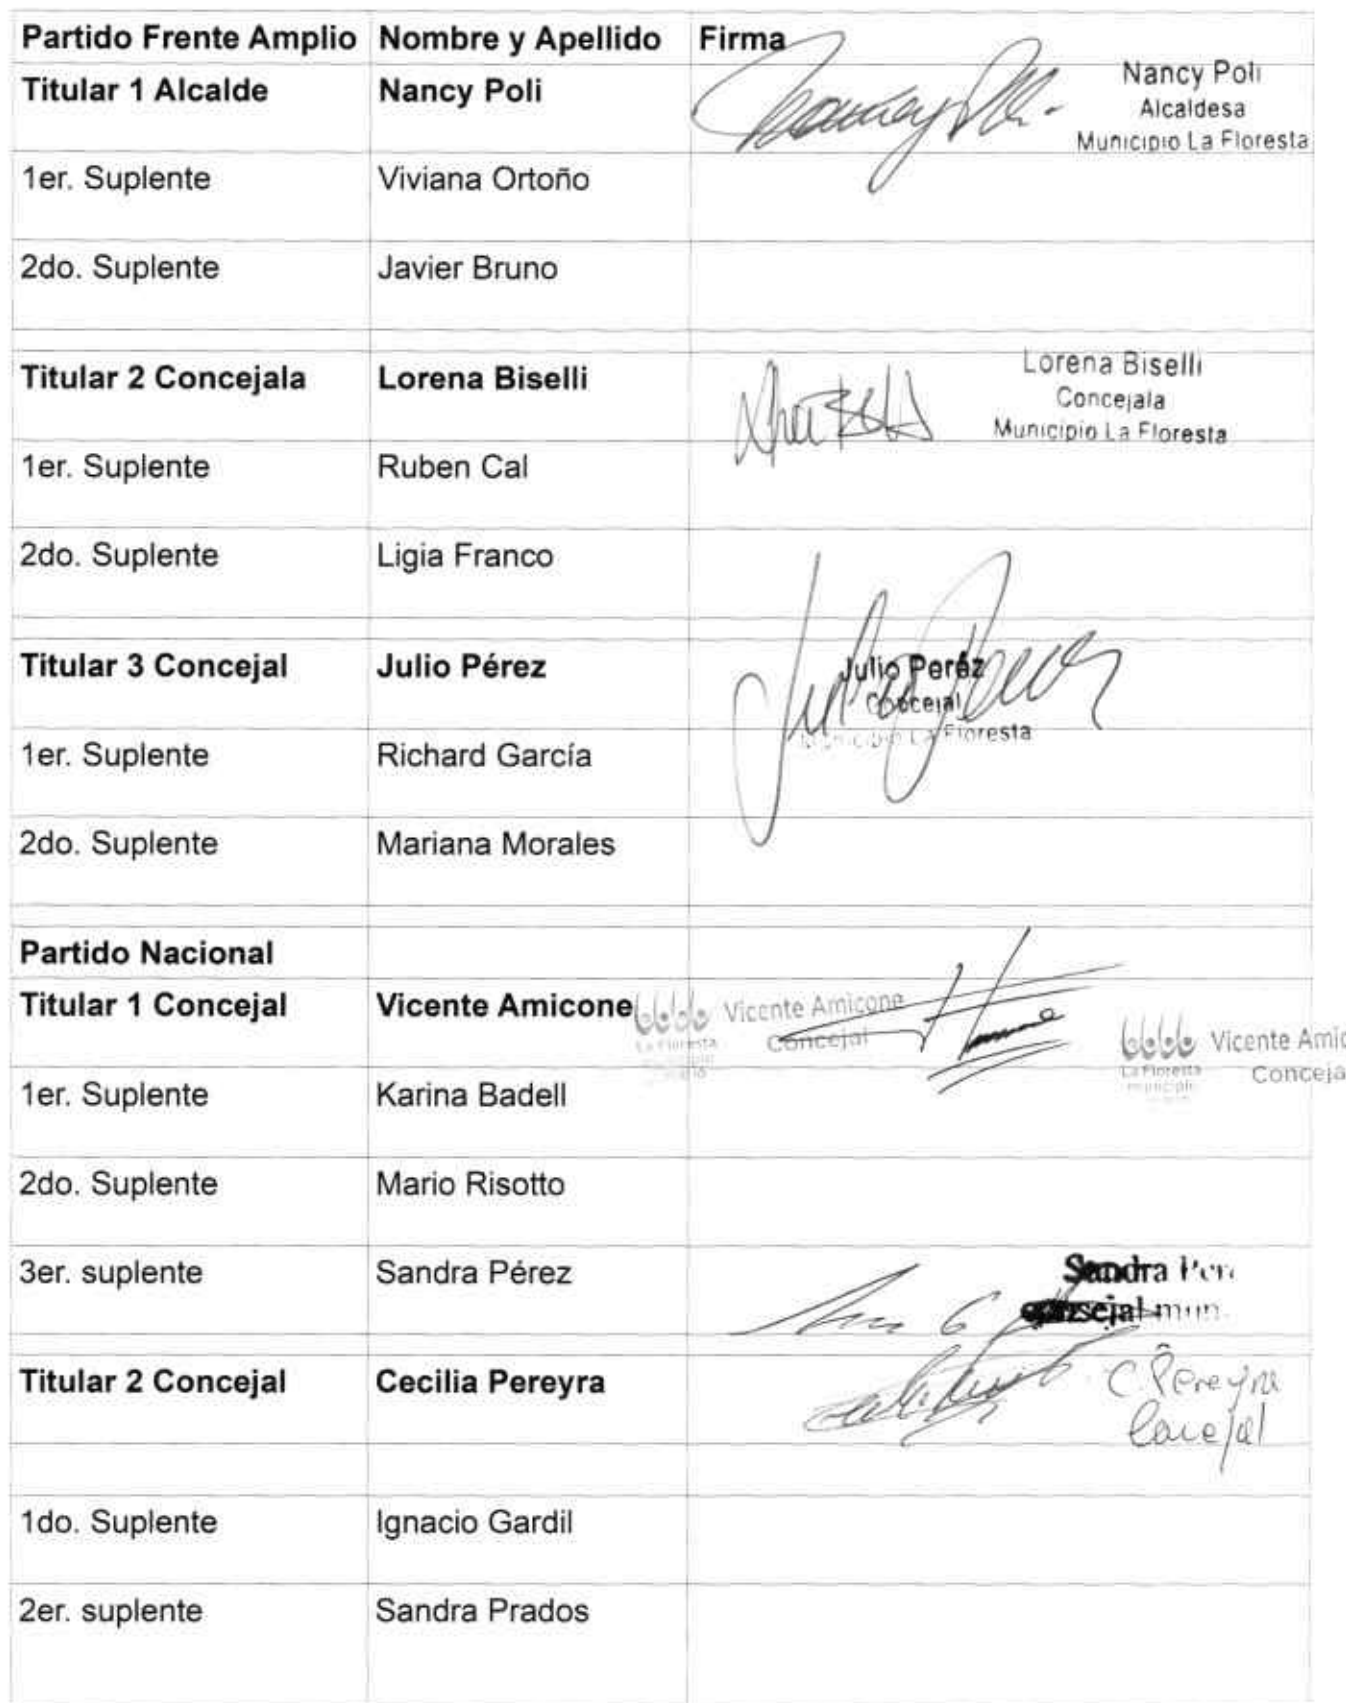 Partido Frente Amplio Nombre y Apellido Firma
Titular 1 Alcalde Nancy Poli
Nancy Poli
Alcaldesa
Municipio La Floresta
1er. Suplente Viviana Ortoño
2do. Suplente Javier Bruno
Titular 2 Concejala Lorena Biselli
Lorena Biselli
Concejala
Municipio La Floresta
1er. Suplente Ruben Cal
2do. Suplente Ligia Franco
Titular 3 Concejal Julio Pérez
Julio Peréz
Concejal
Municipio La Floresta
1er. Suplente Richard García
2do. Suplente Mariana Morales
Partido Nacional
Titular 1 Concejal Vicente Amicone
Vicente Amicone
Concejal
La Floresta
Vicente Amic
Conceja
La Floresta
municipio
1er. Suplente Karina Badell
2do. Suplente Mario Risotto
3er. suplente Sandra Pérez
Sandra
Titular 2 Concejal Cecilia Pereyra
C. Pereyra
1do. Suplente Ignacio Gardil
2er. suplente Sandra Prados